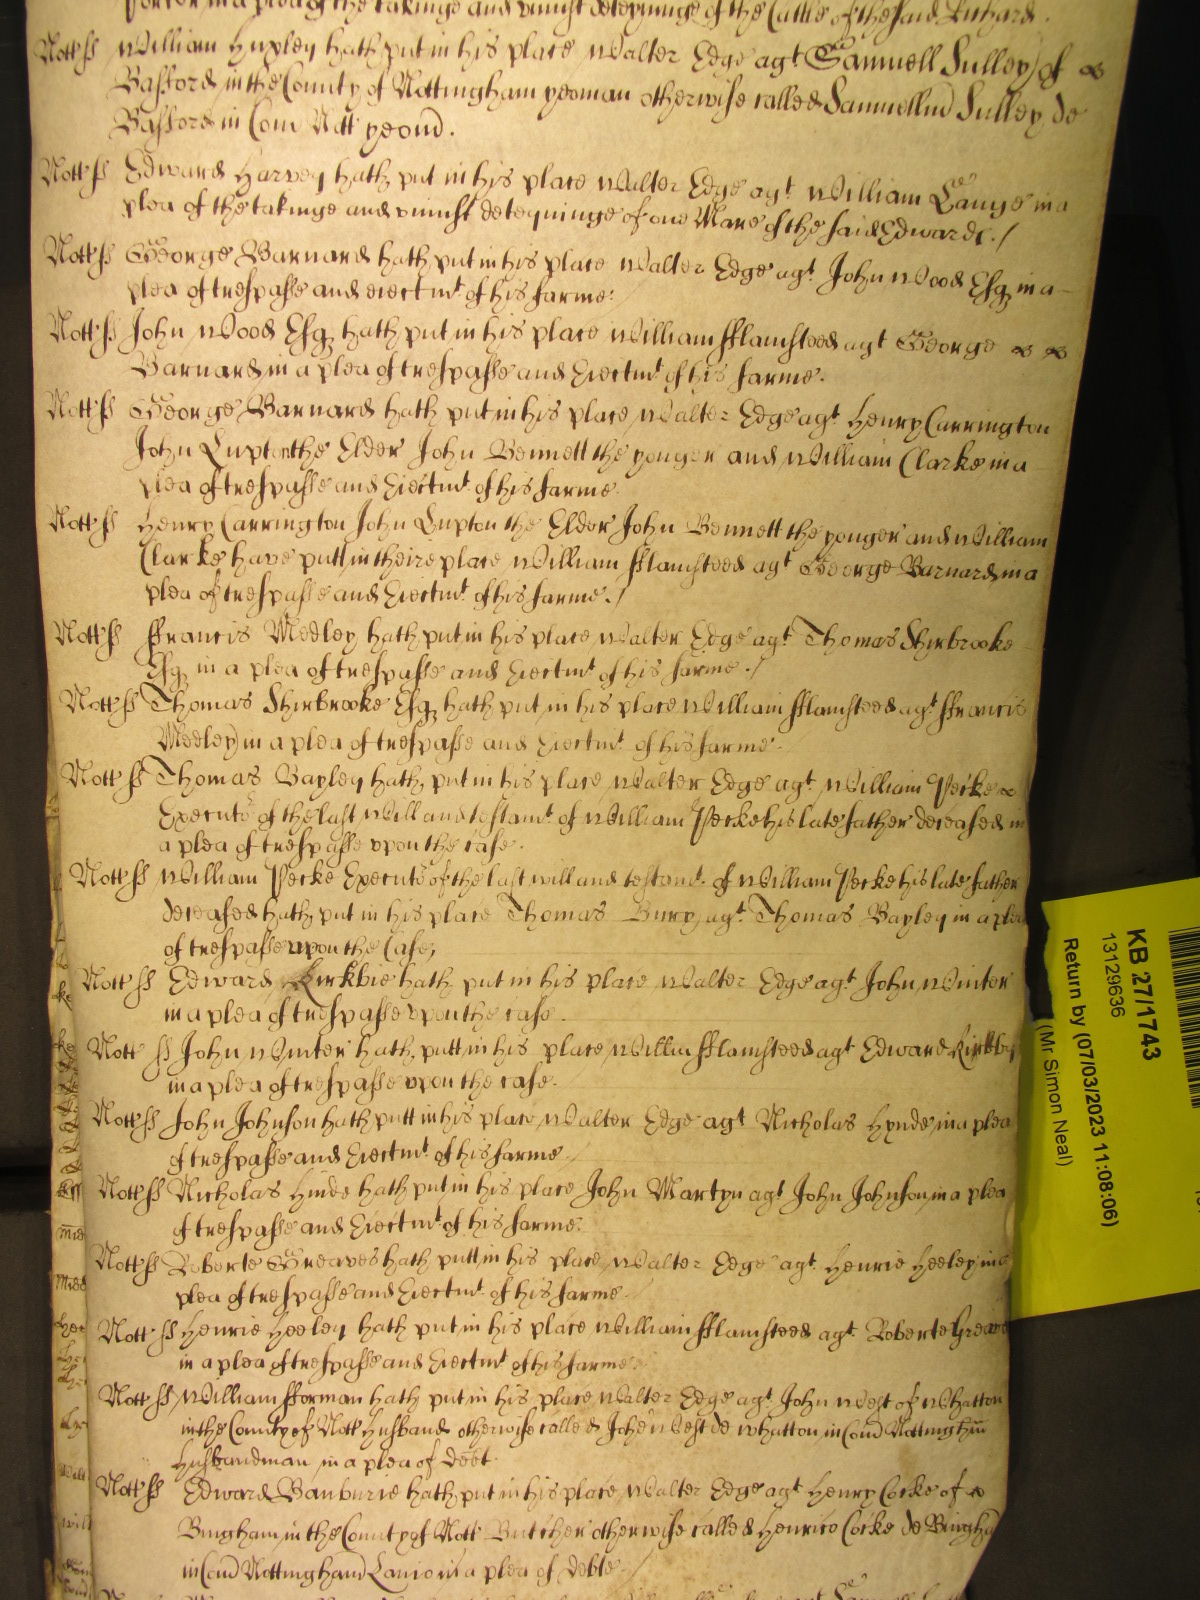 in a plea of the takinge and uniust deteyninge of the Cattle of the said Richard.
Nott ss William Huxley hath put in his place Walter Edge agt Samuell Sulley of
Basford in the County of Nottingham yeoman otherwise called Samuellm Sulley de
Basford in Com Nott yeom.
Nott ss Edward Harvey hath put in his place Walter Edge agt William Lange in a
plea of the takinge and uniust deteyninge of one Mare of the said Edward. /
Nott ss George Barnard hath put in his place Walter Edge agt John Wood Esq in a
plea of trespasse and eiectmt of his farme.
Nott ss John Wood Esq hath put in his place William fflamsteed agt George
Barnard in a plea of trespasse and Eiectmt of his farme.
Nott ss George Barnard hath put in his place Walter Edge agt Henry Carrington
John Lupton the Elder John Bennett the yonger and William Clarke in a
plea of trespasse and Eiectmt of his farme.
Nott ss Henry Carrington John Lupton the Elder John Bennett the yonger and William
Clarke have putt in theire place William fflamsteed agt George Barnard in a
plea of trespasse and Eiectmt of his farme. /
Nott ss ffrancis Medley hath put in his place Walter Edge agt Thomas Shirbrooke
Esq in a plea of trespasse and Eiectmt of his farme. /
Nott ss Thomas Shirbrooke Esq hath put in his place William fflamsteed agt ffrancis
Medley in a plea of trespasse and Eiectmt of his farme.
Nott ss Thomas Bayley hath put in his place Walter Edge agt William Pecke
Executor of the last will and testamt of William Pecke his late father deceased in
a plea of trespasse upon the case.
Nott ss William Pecke Executor of the last will and testamt of William Pecke his late father
deceased hath put in his place Thomas Bury agt Thomas Bayley in a plea
of trespasse upon the Case;
Nott ss Edward Kirkbie hath put in his place Walter Edge agt John Winter
in a plea of trespasse upon the case.
Nott ss John Winter hath putt in his place Willim fflamsteed agt Edward Kirkby
in a plea of trespasse upon the case.
Nott ss John Johnson hath putt in his place Walter Edge agt Nicholas Hynde in a plea
of trespasse and Eiectmt of his farme.
Nott ss Nicholas Hinde hath put in his place John Martyn agt John Johnson in a plea
of trespasse and Eiectmt of his farme.
Nott ss Roberte Greaves hath putt in his place Walter Edge agt Henrie Heeley in a
plea of trespasse and Eiectmt of his farme.
Nott ss Henrie Heeley hath put in his place William fflamsteed agt Roberte Greaves
in a plea of trespasse and Eiectmt of his farme.
Nott ss William fforman hath put in his place Walter Edge agt John West of Whatton
in the County of Nott Husband otherwise called Johem West de Whatton in Com Nottinghm
Husbandman in a plea of Debt.
Nott ss Edward Banburie hath put in his place Walter Edge agt Henry Cocke of
Bingham in the County of Nott Butcher otherwise called Henrico Cocke de Bingham
in Com Nottingham Lanio in a plea of debte.
KB 27/1743
13129636
Return by (07/03/2023 11:08:06)
(Mr Simon Neal)